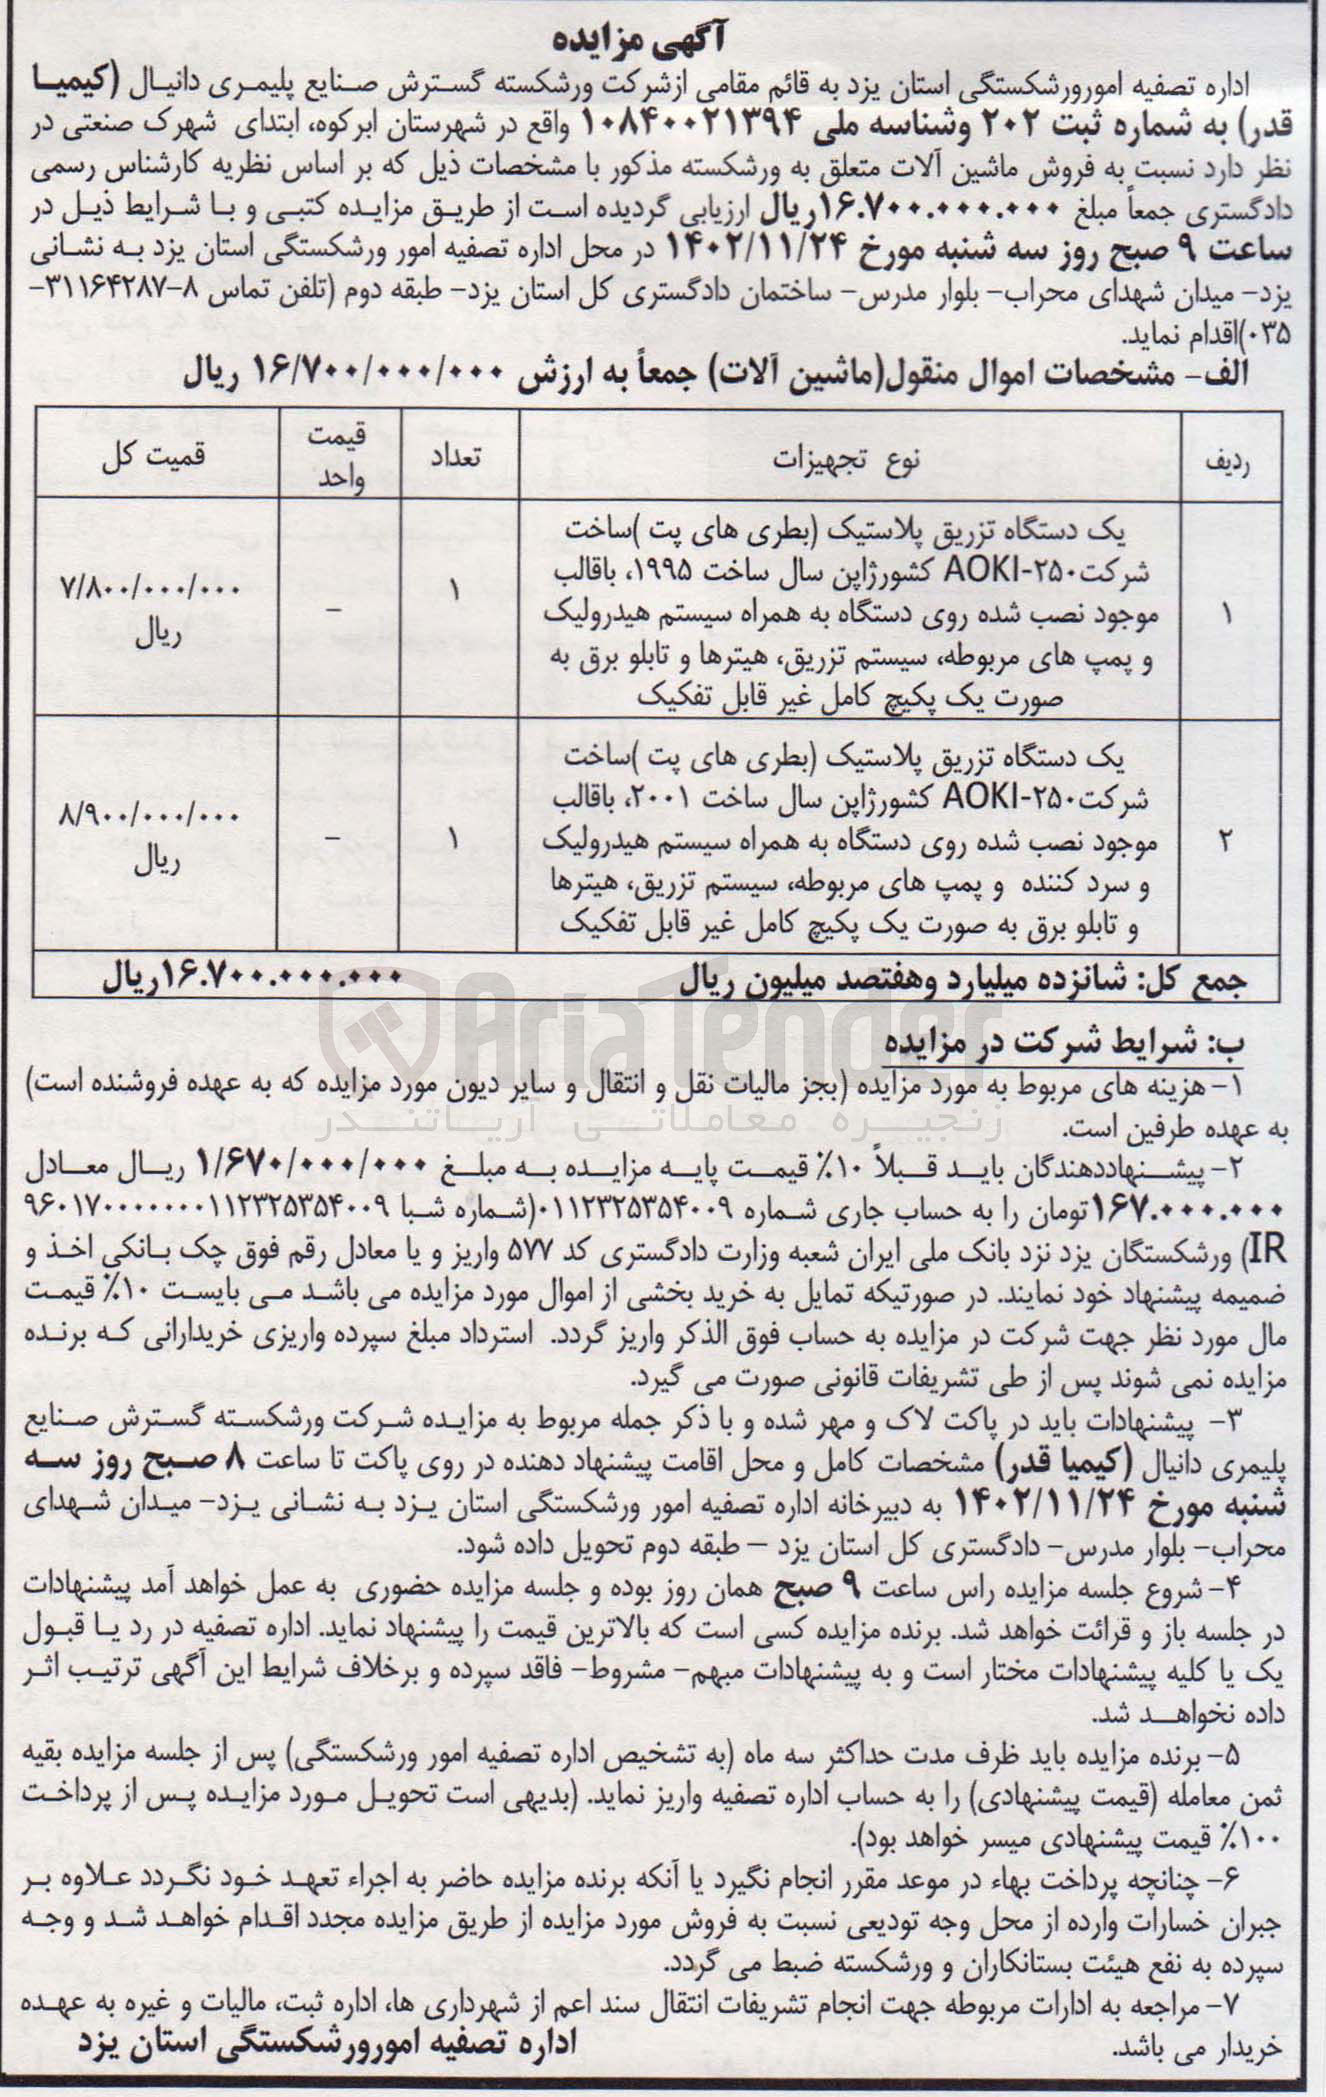 آگهی مزایده
اداره تصفیه امورورشکستگی استان یزد به قائم مقامی ازشرکت ورشکسته گسترش صنایع پلیمری دانیال (کیمیا
قدر) به شماره ثبت ۲۰۲ وشناسه ملی ۱۰۸۴۰۰۲۱۳۹۴ واقع در شهرستان ابرکوه، ابتدای شهرک صنعتی در
نظر دارد نسبت به فروش ماشین آلات متعلق به ورشکسته مذکور با مشخصات ذیل که بر اساس نظریه کارشناس رسمی
دادگستری جمعاً مبلغ ۱۶.۷۰۰.۰۰۰.۰۰۰ریال ارزیابی گردیده است از طریق مزایده کتبی و با شرایط ذیل در
ساعت ۹ صبح روز سه شنبه مورخ ۱۴۰۲/۱۱/۲۴ در محل اداره تصفیه امور ورشکستگی استان یزد به نشانی
یزد- میدان شهدای محراب- بلوار مدرس- ساختمان دادگستری کل استان یزد- طبقه دوم (تلفن تماس ۸-۳۱۱۶۴۲۸۷-
۰۳۵)اقدام نماید.
الف- مشخصات اموال منقول(ماشین آلات) جمعاً به ارزش ۱۶/۷۰۰/۰۰۰/۰۰۰ ریال
ردیف نوع تجهیزات تعداد قیمت واحد قمیت کل
۱ یک دستگاه تزریق پلاستیک (بطری های پت )ساخت
شرکت۲۵۰-AOKI کشورژاپن سال ساخت ۱۹۹۵، باقالب
موجود نصب شده روی دستگاه به همراه سیستم هیدرولیک
و پمپ های مربوطه، سیستم تزریق، هیترها و تابلو برق به
صورت یک پکیچ کامل غیر قابل تفکیک
۱ - ۷/۸۰۰/۰۰۰/۰۰۰
ریال
۲ یک دستگاه تزریق پلاستیک (بطری های پت )ساخت
شرکت۲۵۰-AOKI کشورژاپن سال ساخت ۲۰۰۱، باقالب
موجود نصب شده روی دستگاه به همراه سیستم هیدرولیک
و سرد کننده و پمپ های مربوطه، سیستم تزریق، هیترها
و تابلو برق به صورت یک پکیچ کامل غیر قابل تفکیک
۱ - ۸/۹۰۰/۰۰۰/۰۰۰
ریال
جمع کل: شانزده میلیارد وهفتصد میلیون ریال ۱۶.۷۰۰.۰۰۰.۰۰۰ریال
AriaTender
زنجیره معاملاتی آریاتندر
ب: شرایط شرکت در مزایده
۱- هزینه های مربوط به مورد مزایده (بجز مالیات نقل و انتقال و سایر دیون مورد مزایده که به عهده فروشنده است)
به عهده طرفین است.
۲- پیشنهاددهندگان باید قبلاً ۱۰٪ قیمت پایه مزایده به مبلغ ۱/۶۷۰/۰۰۰/۰۰۰ ریال معادل
۱۶۷.۰۰۰.۰۰۰تومان را به حساب جاری شماره ۰۱۱۲۳۲۵۳۵۴۰۰۹(شماره شبا ۹۶۰۱۷۰۰۰۰۰۰۰۱۱۲۳۲۵۳۵۴۰۰۹
IR) ورشکستگان یزد نزد بانک ملی ایران شعبه وزارت دادگستری کد ۵۷۷ واریز و یا معادل رقم فوق چک بانکی اخذ و
ضمیمه پیشنهاد خود نمایند. در صورتیکه تمایل به خرید بخشی از اموال مورد مزایده می باشد می بایست ۱۰٪ قیمت
مال مورد نظر جهت شرکت در مزایده به حساب فوق الذکر واریز گردد. استرداد مبلغ سپرده واریزی خریدارانی که برنده
مزایده نمی شوند پس از طی تشریفات قانونی صورت می گیرد.
۳- پیشنهادات باید در پاکت لاک و مهر شده و با ذکر جمله مربوط به مزایده شرکت ورشکسته گسترش صنایع
پلیمری دانیال (کیمیا قدر) مشخصات کامل و محل اقامت پیشنهاد دهنده در روی پاکت تا ساعت ۸ صبح روز سه
شنبه مورخ ۱۴۰۲/۱۱/۲۴ به دبیرخانه اداره تصفیه امور ورشکستگی استان یزد به نشانی یزد- میدان شهدای
محراب- بلوار مدرس- دادگستری کل استان یزد – طبقه دوم تحویل داده شود.
۴- شروع جلسه مزایده راس ساعت ۹ صبح همان روز بوده و جلسه مزایده حضوری به عمل خواهد آمد پیشنهادات
در جلسه باز و قرائت خواهد شد. برنده مزایده کسی است که بالاترین قیمت را پیشنهاد نماید. اداره تصفیه در رد یا قبول
یک یا کلیه پیشنهادات مختار است و به پیشنهادات مبهم- مشروط- فاقد سپرده و برخلاف شرایط این آگهی ترتیب اثر
داده نخواهد شد.
۵- برنده مزایده باید ظرف مدت حداکثر سه ماه (به تشخیص اداره تصفیه امور ورشکستگی) پس از جلسه مزایده بقیه
ثمن معامله (قیمت پیشنهادی) را به حساب اداره تصفیه واریز نماید. (بدیهی است تحویل مورد مزایده پس از پرداخت
۱۰۰٪ قیمت پیشنهادی میسر خواهد بود).
۶- چنانچه پرداخت بهاء در موعد مقرر انجام نگیرد یا آنکه برنده مزایده حاضر به اجراء تعهد خود نگردد علاوه بر
جبران خسارات وارده از محل وجه تودیعی نسبت به فروش مورد مزایده از طریق مزایده مجدد اقدام خواهد شد و وجه
سپرده به نفع هیئت بستانکاران و ورشکسته ضبط می گردد.
۷- مراجعه به ادارات مربوطه جهت انجام تشریفات انتقال سند اعم از شهرداری ها، اداره ثبت، مالیات و غیره به عهده
خریدار می باشد.
اداره تصفیه امورورشکستگی استان یزد